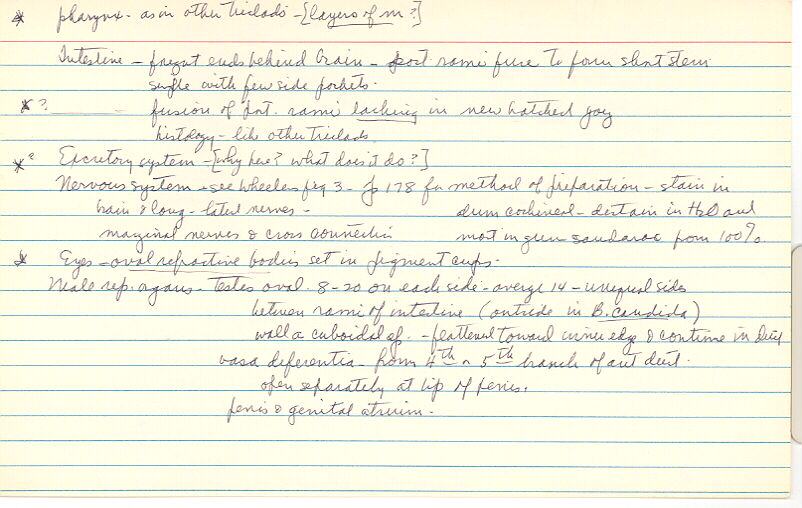 * pharynx - as in other triclads - [layers of m?]
Intestine - front ends behind brain - post rami fuse to form short stem
single with few side pockets.
*? fusion of post. rami lacking in new hatched
histology - like other triclads
*? Excretory system - [why here? what does it do?]
Nervous system - see Wheeler fig 3 - p 178 for method of preparation - stain in
brain & long - lateral nerves - dum cochineal - destain in H2O and
marginal nerves & cross connectin mat in gum sandarac from 100%
* Eyes - oval refractive bodies set in pigment cups.
Male rep. organs - Testes oval 8-20 on each side - averge 14 - unequal sides
between rami of intestine (outside in B. candida)
wall a cuboidal ep. - flattened toward inner edge & continue in duct
vasa deferentia - from 4th or 5th branch of ant duct.
open separately at tip of penis.
penis & genital atrium -